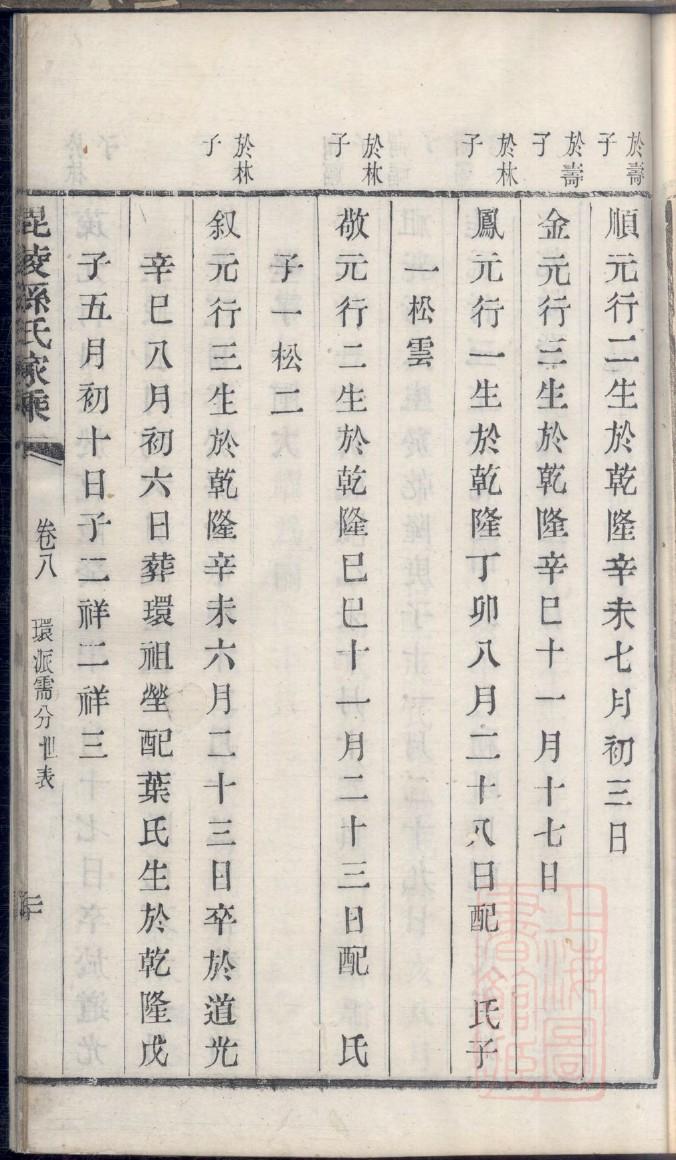 於壽子
順元行二生於乾隆辛未七月初三日
於壽子
金元行三生於乾隆辛巳十一月十七日
於林子
鳳元行一生於乾隆丁卯八月二十八日配　氏子
一松雲
於林子
敬元行二生於乾隆巳巳十一月二十三日配　氏
子一松二
於林子
叙元行三生於乾隆辛未六月二十三日卒於道光
辛巳八月初六日葬環祖塋配葉氏生於乾隆戊
子五月初十日子二祥二祥三
毘陵孫氏家乘
卷八　環派需分世表